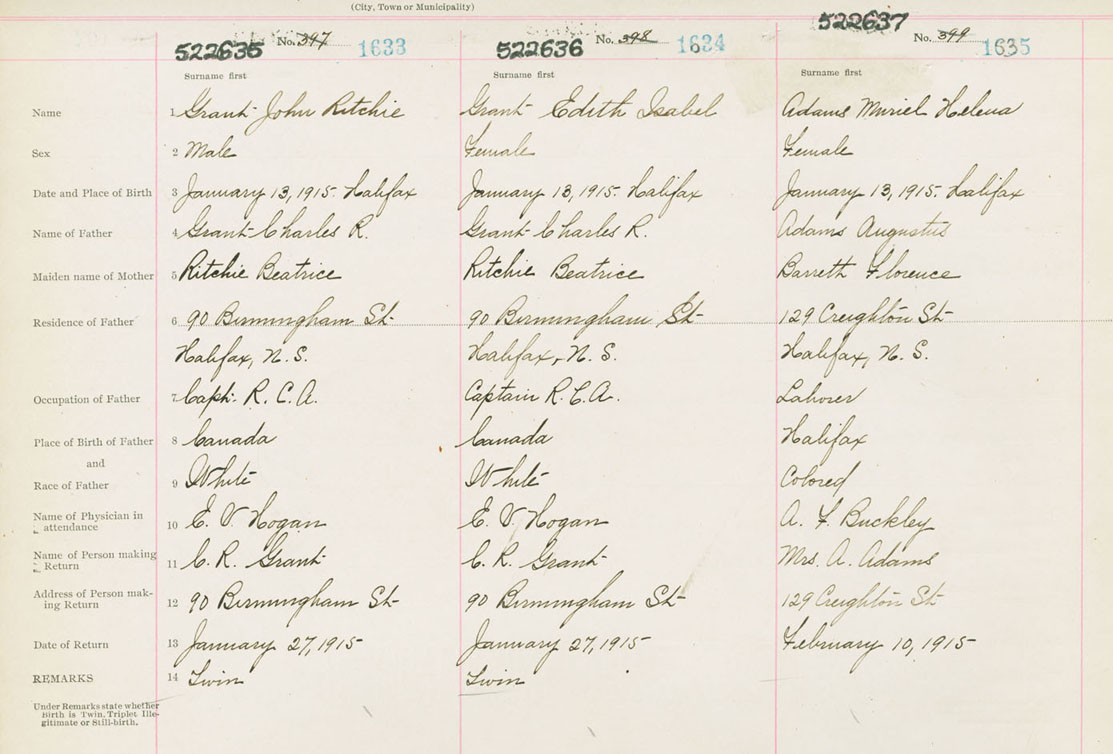 (City, Town or Municipality)
522635 No. 397 1633 522636 No. 398 1634 522637 No. 399 1635
Surname first Surname first Surname first
Name 1 Grant John Ritchie Grant Edith Isabel Adams Muriel Helena
Sex 2 Male Female Female
Date and Place of Birth 3 January 13, 1915. Halifax January 13, 1915. Halifax January 13, 1915. Halifax
Name of Father 4 Grant Charles R. Grant Charles R. Adams Augustus
Maiden name of Mother 5 Ritchie Beatrice Ritchie Beatrice Barrett Florence
Residence of Father 6 90 Birmingham St 90 Birmingham St 129 Creighton St
Halifax, N. S. Halifax, N. S. Halifax, N. S.
Occupation of Father 7 Capt. R. C. A. Captain R. C. A. Laborer
Place of Birth of Father 8 Canada Canada Halifax
and
Race of Father 9 White White Colored
Name of Physician in
attendance 10 E. V. Hogan E. V. Hogan A. F. Buckley
Name of Person making
Return 11 C. R. Grant C. R. Grant Mrs. A. Adams
Address of Person mak-
ing Return 12 90 Birmingham St 90 Birmingham St 129 Creighton St
Date of Return 13 January 27, 1915 January 27, 1915 February 10, 1915
REMARKS 14 Twin Twin
Under Remarks state whether
Birth is Twin, Triplet Ille-
gitimate or Still-birth.